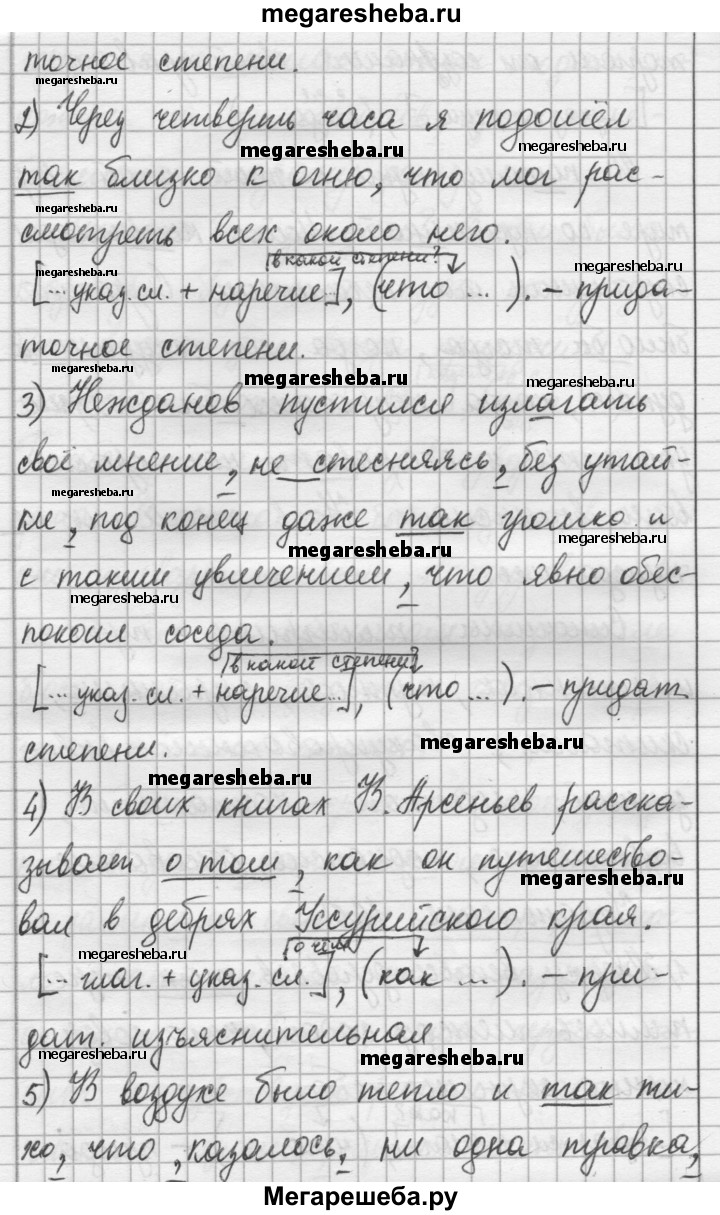 megaresheba.ru
точное степени.
megaresheba.ru
2) Через четверть часа я подошёл
megaresheba.ru megaresheba.ru
так близко к огню, что мог рас-
megaresheba.ru
смотреть всех около него.
в какой степени?
[... указ. сл. + наречие...], (что ...). – прида- megaresheba.ru
точное степени.
megaresheba.ru megaresheba.ru
3) Нежданов пустился излагать megaresheba.ru
своё мнение, не стесняясь, без утай-
megaresheba.ru
ки, под конец даже так громко и
megaresheba.ru megaresheba.ru
с таким увлечением, что явно обес-
megaresheba.ru
покоил соседа.
в какой степени?
[... указ. сл. + наречие...], (что ...). – придат.
megaresheba.ru
степени. megaresheba.ru
megaresheba.ru
4) В своих книгах В. Арсеньев расска-
зывает о том, как он путешество-
megaresheba.ru
вал в дебрях Уссурийского края.
megaresheba.ru о чём
[... глаг. + указ. сл.], (как ...). – при-
дат. изъяснительная
megaresheba.ru megaresheba.ru
5) В воздухе было тепло и так ти-
хо, что, казалось, ни одна травка,
Мегарешеба.ру